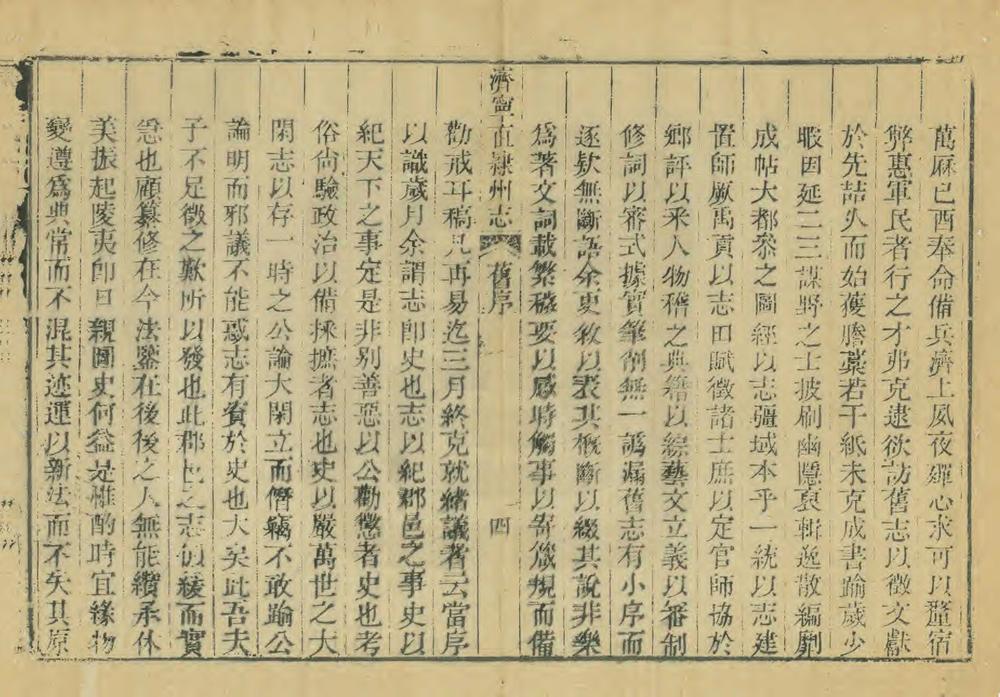 萬厤己酉奉命備兵濟上夙夜殫心求可以釐宿
弊惠軍民者行之才弗克逮欲訪舊志以徵文獻
於先喆久而始獲謄藁若干紙未克成書踰歲少
暇因延二三謀野之士披刷幽隱裒輯逸散編劘
成帖大都叅之圖經以志疆域本乎一統以志建
置師厥禹貢以志田賦徵諸士庶以定官師協於
鄉評以釆人物稽之典籍以綜藝文立義以審制
修詞以審式據實筆削無一譌漏舊志有小序而
逐欵無斷語余更敘以表其槪斷以綴其說非樂
爲著文詞載繁穢要以感時觸事以寄儆規而備
濟寧直隸州志 舊序 四
勸戒耳稿凡再易迄三月終克就緒議者云當序
以識歲月余謂志卽史也志以紀郡邑之事史以
紀天下之事定是非别善惡以公勸懲者史也考
俗尙驗政治以備採摭者志也史以嚴萬世之大
閑志以存一時之公論大閑立而僭竊不敢踰公
論明而邪議不能惑志有資於史也大矣此吾夫
子不足徵之歎所以發也此郡邑之志似緩而實
急也顧纂修在今法鑒在後後之人無能纘承休
美振起陵夷卽日親圖史何益是惟酌時宜緣物
變遵爲典常而不混其迹運以新法而不失其原